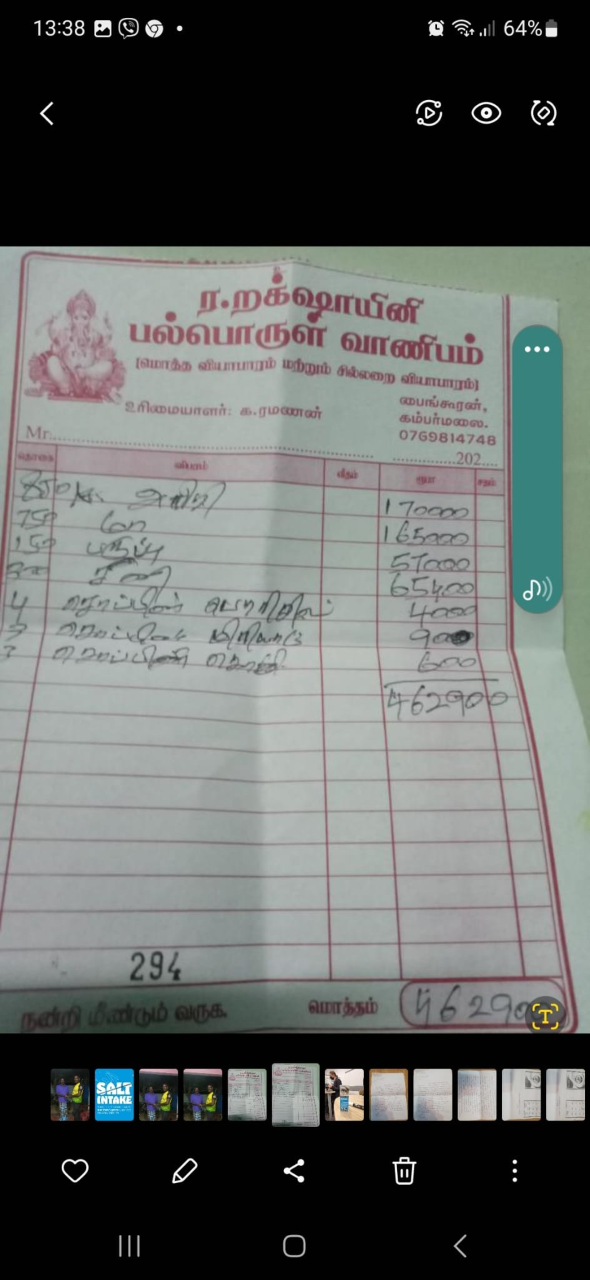 13:38
64%
ர.றக்ஷாயினி
பல்பொருள் வாணிபம்
(மொத்த வியாபாரம் மற்றும் சில்லறை வியாபாரம்)
உரிமையாளர்: க.ரமணன்
பைங்கூரன்,
கம்பர்மலை.
0769814748
Mr.
202
தொகை விபரம் வீதம் ரூபா சதம்
850 Kg அரிசி 170000
750 மா 165000
150 பருப்பு 57000
300 சீனி 65400
4 4000
900
600
462900
294
நன்றி மீண்டும் வருக.
மொத்தம்
462900
T
SALT
INTAKE